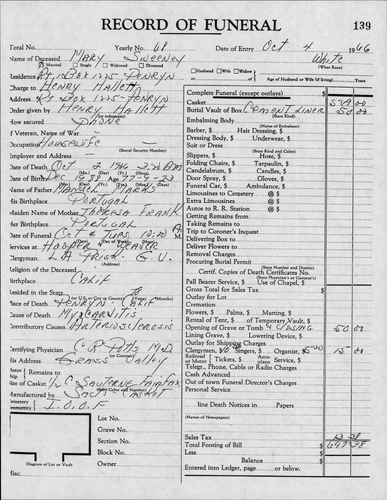 RECORD OF FUNERAL 139
Total No. Yearly No. 68 Date of Entry Oct 4 1966
Name of Deceased Mary Sweeney White
Married Single Widowed Divorced Husband Wife Widow (What Race)
Residence Rt 1 Box 1225 - Penryn Age of Husband or Wife (if living) Years
Charge to Henry Hallett Complete Funeral (except outlays) $
Address Rt Box 1225 - Penryn Casket $ 579 00
Order given by Henry Hallett Burial Vault of Box Cement Liner 50 00
How secured Phone Embalming Body
If Veteran, Name of War Barber, $ Hair Dressing, $
Occupation Housewife Dressing Body, $ Underwear, $
(Social Security Number) Suit or Dress
Employer and Address Slippers, $ Hose, $
Date of Death Oct 2 1966 Folding Chairs, $ Tarpaulin, $
Date of Birth Dec 1888 77-9- Candelabrum, $ Candles, $
Name of Father Manuel Door Spray, $ Gloves, $
His Birthplace Portugal Funeral Car, $ Ambulance, $
Maiden Name of Mother Theresa Frank Limousines to Cemetery @ $
Her Birthplace Portugal Extra Limousines @ $
Date of Funeral Oct 4 Tues 10:30 A M. Autos to R. R. Station @ $
Services at Hooper & Weaver Getting Remains from
Clergyman G.V. Taking Remains to
Religion of the Deceased Trip to Coroner's Inquest
Birthplace Calif Delivering Box to
Resided in the State Deliver Flowers to
Place of Death Penryn - Calif Removal Charges
Cause of Death Myocarditis Procuring Burial Permit
Contributory Causes Arteriosclerosis Certif. Copies of Death Certificates No.
Certifying Physician C R Potts M.D. Pall Bearer Service, $ Use of Chapel, $
His Address Grass Valley Gross Total for Sales Tax $
Motor Remains to Ship Outlay for Lot
Size of Casket Cremation
Manufactured by Casket Flowers, $ Palms, $ Matting, $
Cemetery I.O.O.F Rental of Tent, $ of Temporary, Vault, $
Opening of Grave or Tomb & Closing 50 00
Lining Grave, $ Lowering Device, $
Outlay for Shipping Charges
Clergymen, $ 10 Singers, $ Organist, $ 5.00 15 00
Railroad Motor Tickets, $ Aero- Service, $
Teleg., Phone, Cable or Radio Charges
Cash Advanced
Out of town Funeral Director's Charges
Personal Service
line Death Notices in Papers
(Names of Newspapers)
Lot No.
Grave No.
Section No. Sales Tax
Block No. Total Footing of Bill $
Less $
Owner Balance $
Diagram of Lot or Vault Entered into Ledger, page or below.